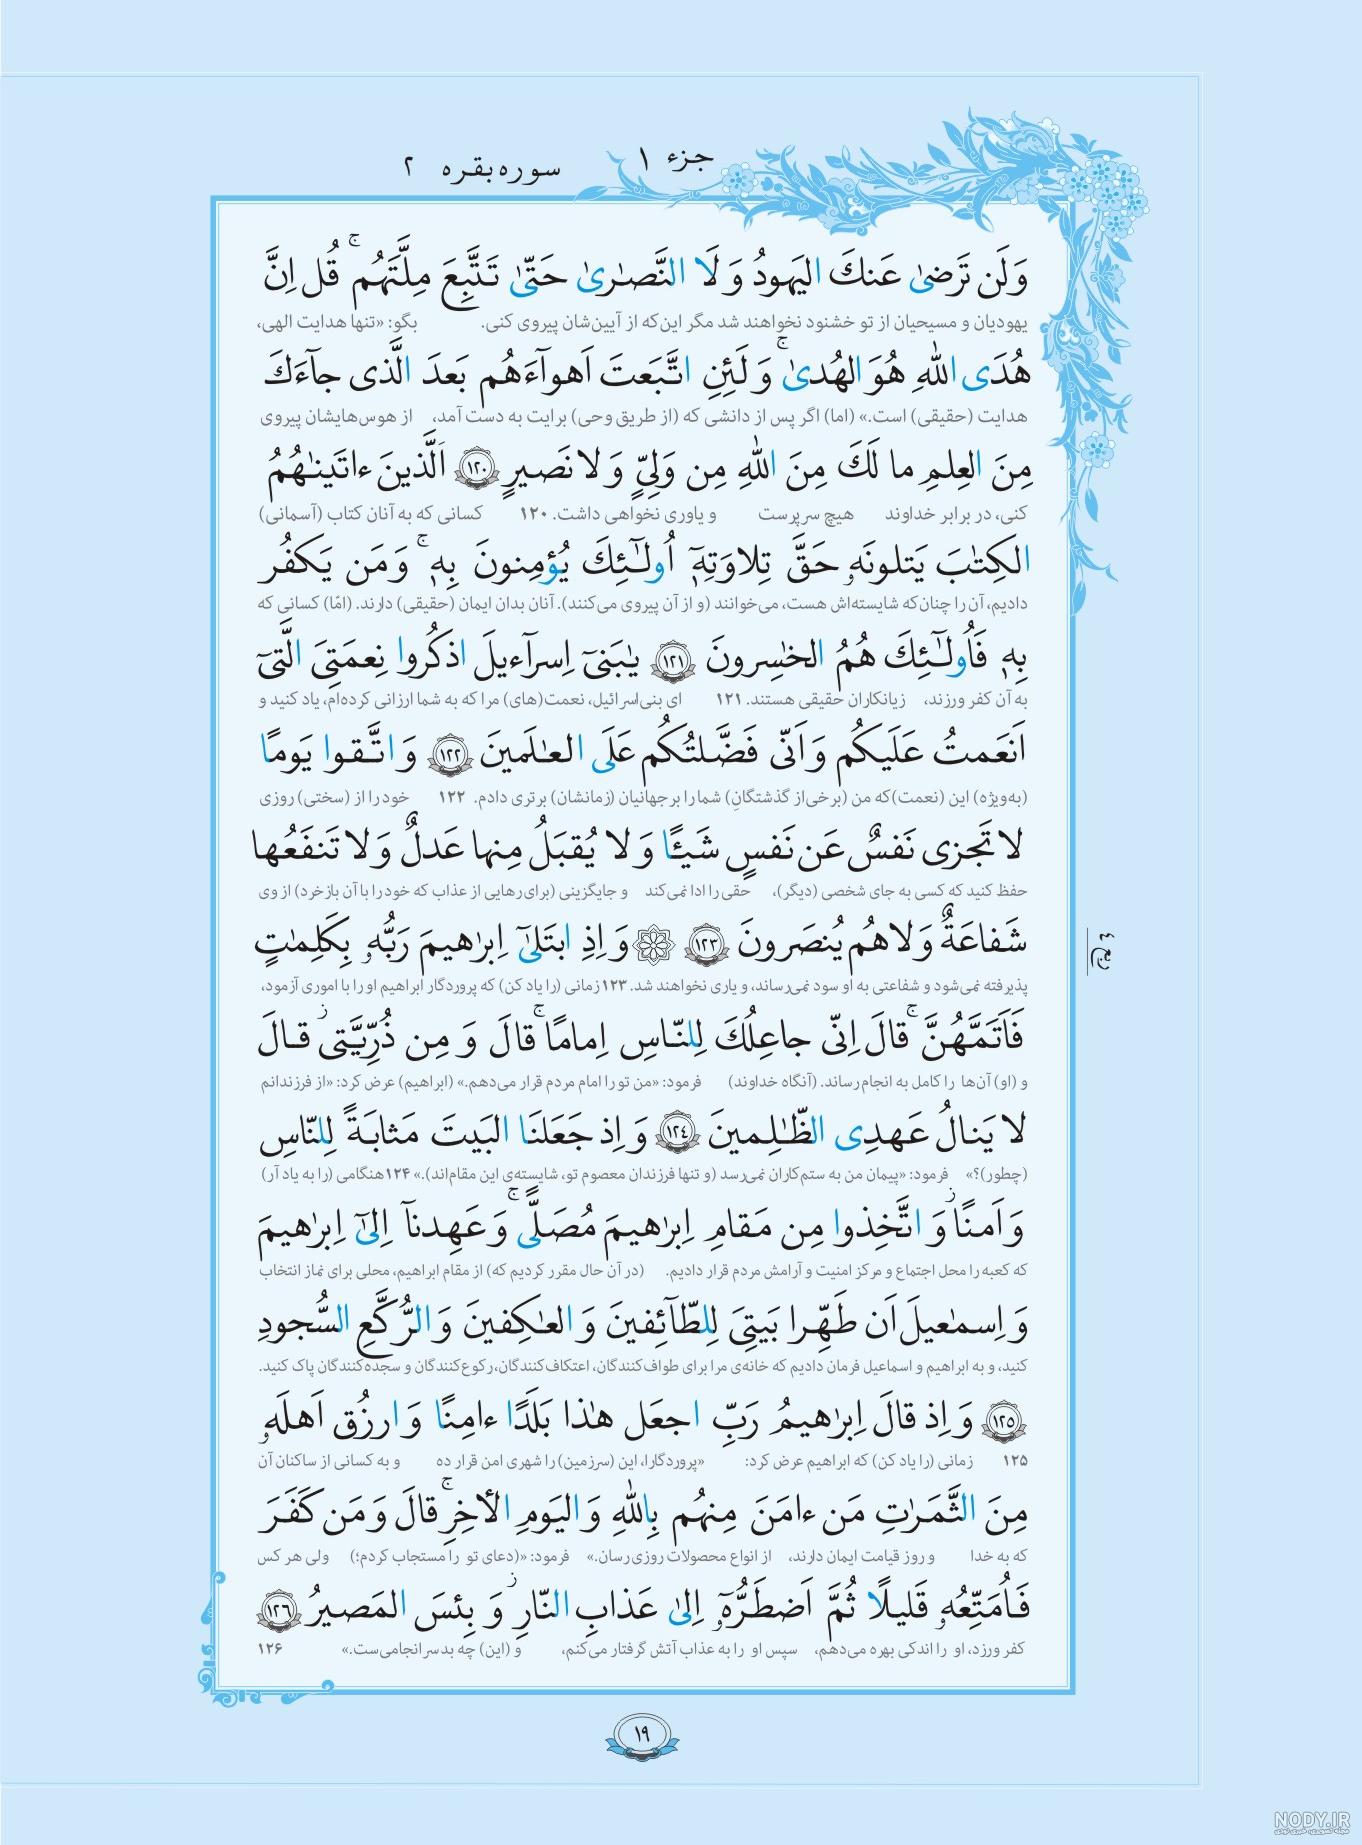 جزء ۱
سوره بقره ۲
وَلَن تَرضىٰ عَنكَ اليَهودُ وَ لَا النَّصـٰرىٰ حَتّىٰ تَتَّبِعَ مِلَّتَهُم ۚ قُل اِنَّ
یهودیان و مسیحیان از تو خشنود نخواهند شد مگر این‌که از آیین‌شان پیروی کنی. بگو: «تنها هدایت الهی،
هُدَى اللّٰهِ هُوَ الهُدىٰ ۚ وَ لَئِنِ اتَّبَعتَ اَهوآءَهُم بَعدَ الَّذى جآءَكَ
هدایت (حقیقی) است.» (اما) اگر پس از دانشی که (از طریق وحی) برایت به دست آمد، از هوس‌هایشان پیروی
مِنَ العِلمِ ما لَكَ مِنَ اللّٰهِ مِن وَلِىٍّ وَ لا نَصيرٍ ﴿۱۲۰﴾ اَلَّذينَ ءاتَينـٰهُمُ
کنی، در برابر خداوند هیچ سرپرست و یاوری نخواهی داشت. ۱۲۰ کسانی که به آنان کتاب (آسمانی)
الكِتـٰبَ يَتلونَهۥ حَقَّ تِلاوَتِهٖٓ اُولـٰٓئِكَ يُؤمِنونَ بِهٖ ۚ وَمَن يَكفُر
دادیم، آن را چنان‌که شایسته‌اش هست، می‌خوانند (و از آن پیروی می‌کنند). آنان بدان ایمان (حقیقی) دارند. (امّا) کسانی که
بِهٖ فَاُولـٰٓئِكَ هُمُ الخـٰسِرونَ ﴿۱۲۱﴾ يـٰبَنىٓ اِسرآءيلَ اذكُروا نِعمَتِىَ الَّتىٓ
به آن کفر ورزند، زیانکاران حقیقی هستند. ۱۲۱ ای بنی‌اسرائیل، نعمت(های) مرا که به شما ارزانی کرده‌ام، یاد کنید و
اَنعَمتُ عَلَيكُم وَ اَنّى فَضَّلتُكُم عَلَى العـٰلَمينَ ﴿۱۲۲﴾ وَ اتَّـقوا يَومًا
(به‌ویژه) این (نعمت)که من (برخی‌از گذشتگانِ) شما را بر جهانیان (زمانشان) برتری دادم. ۱۲۲ خود را از (سختی) روزی
لا تَجزى نَفسٌ عَن نَفسٍ شَيـًٔا وَ لا يُقبَلُ مِنها عَدلٌ وَ لا تَنفَعُها
حفظ کنید که کسی به جای شخصی (دیگر)، حقی را ادا نمی‌کند و جایگزینی (برای‌رهایی از عذاب که خود را با آن بازخرد) از وی
شَفاعَةٌ وَ لا هُم يُنصَرونَ ﴿۱۲۳﴾ ۞ وَ اِذِ ابتَلىٰٓ اِبرٰهيمَ رَبُّهۥ بِكَلِمـٰتٍ
پذیرفته نمی‌شود و شفاعتی به او سود نمی‌رساند، و یاری نخواهند شد. ۱۲۳ زمانی (را یاد کن) که پروردگار ابراهیم او را با اموری آزمود،
ربع ٤
فَاَتَمَّهُنَّ ۚ قالَ اِنّى جاعِلُكَ لِلنّاسِ اِمامًا ۚ قالَ وَ مِن ذُرِّيَّتى ز قـالَ
و (او) آن‌ها را کامل به انجام رساند. (آنگاه خداوند) فرمود: «من تو را امام مردم قرار می‌دهم.» (ابراهیم) عرض کرد: «از فرزندانم
لا يَنالُ عَـهدِى الظّـٰلِمينَ ﴿۱۲۴﴾ وَ اِذ جَعَلنَا البَيتَ مَثابَةً لِلنّاسِ
(چطور)؟» فرمود: «پیمان من به ستم‌کاران نمی‌رسد (و تنها فرزندان معصوم تو، شایسته‌ی این مقام‌اند).» ۱۲۴ هنگامی (را به یاد آر)
وَ اَمنًا ز وَ اتَّخِذوا مِن مَقامِ اِبرٰهيمَ مُصَلًّى ۚ وَ عَهِدنآ اِلىٰٓ اِبرٰهيمَ
که کعبه را محل اجتماع و مرکز امنیت و آرامش مردم قرار دادیم. (در آن حال مقرر کردیم که) از مقام ابراهیم، محلی برای نماز انتخاب
وَ اِسمـٰعيلَ اَن طَهِّرا بَيتِىَ لِلطّآئِفينَ وَ العـٰكِفينَ وَ الرُّكَّعِ السُّجودِ
کنید، و به ابراهیم و اسماعیل فرمان دادیم که خانه‌ی مرا برای طواف‌کنندگان، اعتکاف‌کنندگان، رکوع‌کنندگان و سجده‌کنندگان پاک کنید.
﴿۱۲۵﴾ وَ اِذ قالَ اِبرٰهيمُ رَبِّ اجعَل هـٰذا بَلَدًا ءامِنًا وَ ارزُق اَهلَهۥ
۱۲۵ زمانی (را یاد کن) که ابراهیم عرض کرد: «پروردگارا، این (سرزمین) را شهری امن قرار ده و به کسانی از ساکنان آن
مِنَ الثَّمَرٰتِ مَن ءامَنَ مِنهُم بِاللّٰهِ وَ اليَومِ الأخِرِ ۚ قالَ وَ مَن كَفَرَ
که به خدا و روز قیامت ایمان دارند، از انواع محصولات روزی رسان.» فرمود: «(دعای تو را مستجاب کردم؛) ولی هر کس
فَاُمَتِّعُهۥ قَليلًا ثُمَّ اَضطَرُّهۥٓ اِلىٰ عَذابِ النّارِ ز وَ بِئسَ المَصيرُ ﴿۱۲۶﴾
کفر ورزد، او را اندکی بهره می‌دهم، سپس او را به عذاب آتش گرفتار می‌کنم، و (این) چه بد سرانجامی‌ست.» ۱۲۶
۱۹
NODY.IR